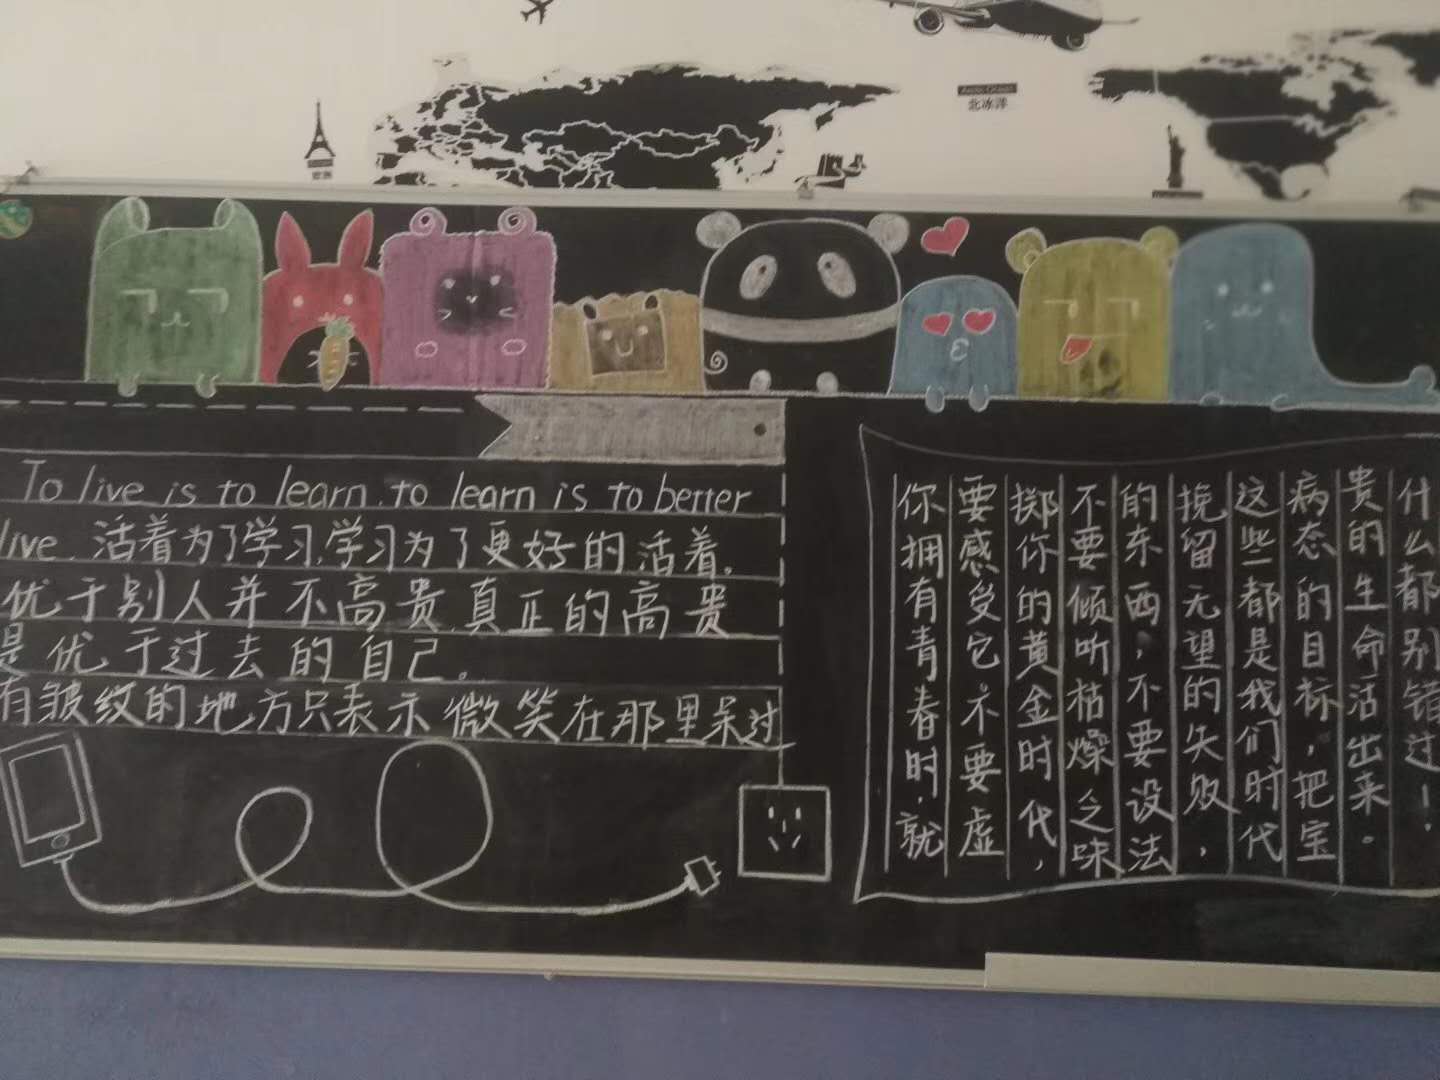 Arctic Ocean
北冰洋
To live is to learn, to learn is to better
live. 活着为了学习,学习为了更好的活着。
优于别人并不高贵,真正的高贵
是优于过去的自己。
有皱纹的地方只表示微笑在那里呆过
你拥有青春时,就
要感受它。不要虚
掷你的黄金时代,
不要倾听枯燥之味
的东西,不要设法
挽留无望的失败,
这些都是我们时代
病态的目标,把宝
贵的生命活出来。
什么都别错过!